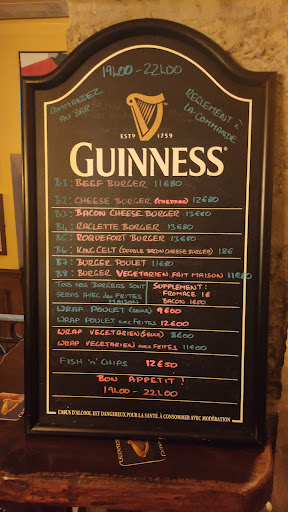 19h00 - 22h00
COMMANDEZ
AU BAR
REGLEMENT à
LA COMMANDE
ESTD 1759
GUINNESS
B1: BEEF BURGER 11€80
B2: CHEESE BURGER (CHEDDAR) 12€80
B3: BACON CHEESE BURGER 13€80
B4: RACLETTE BURGER 13€80
B5: ROQUEFORT BURGER 13€80
B6: KING CELT (DOUBLE BACON CHEESE BURGER) 18€
B7: BURGER POULET 11€80
B8: BURGER VEGETARIEN FAIT MAISON 11€80
TOUS NOS BURGERS SONT
SERVIS AVEC DES FRITES
MAISON
SUPPLEMENT:
FROMAGE 1€
BACON 1€50
WRAP POULET (SEUL) 9€00
WRAP POULET AVEC FRITES 12€00
WRAP VEGETARIEN (SEUL) 8€00
WRAP VEGETARIEN AVEC FRITES 11€00
FISH 'N' CHIPS 12€50
BON APPETIT!
19h00 - 22h00
L'ABUS D'ALCOOL EST DANGEREUX POUR LA SANTÉ. À CONSOMMER AVEC MODÉRATION
GUINNESS